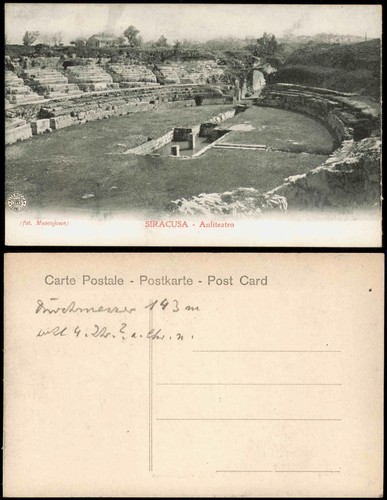 (fot. Musenjown)
SIRACUSA - Anfiteatro
Carte Postale - Postkarte - Post Card
Durchmesser 143 m
4. n.